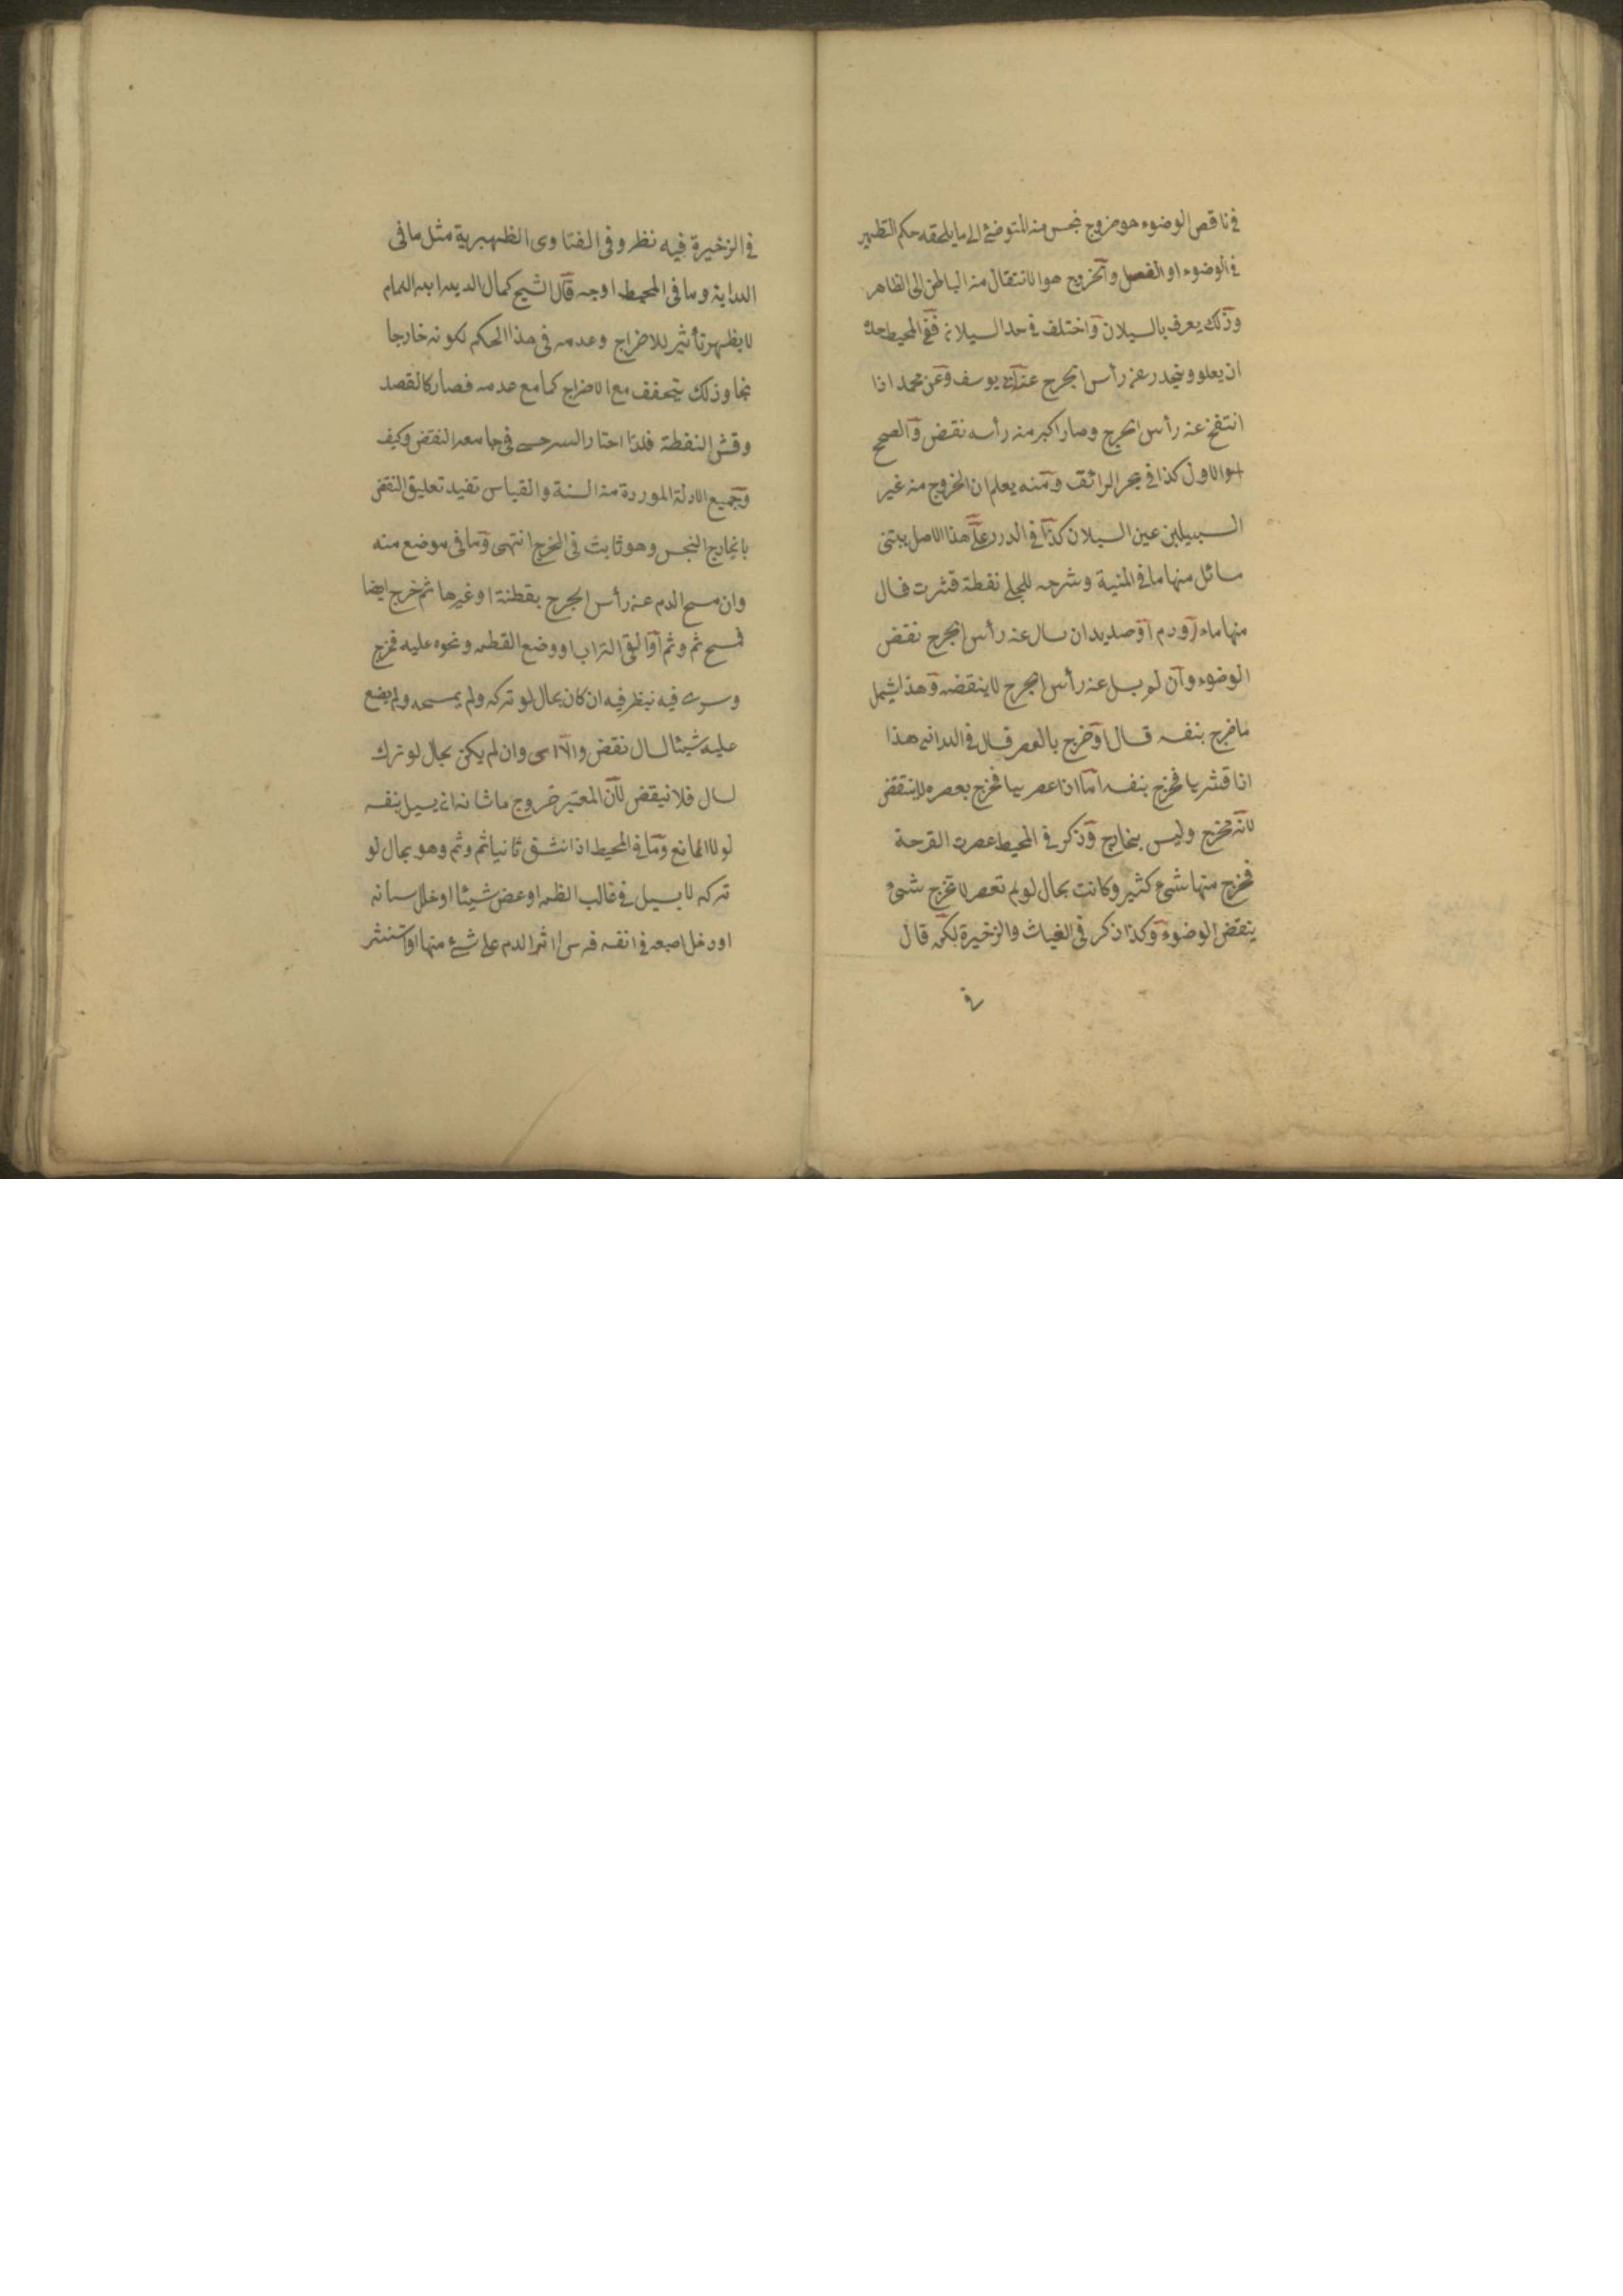 في ناقض الوضوء هو خروج نجس من المتوضئ الى ما يلحقه حكم التطهير
في الوضوء او الغسل والخروج هو الانتقال من الباطن الى الظاهر
وذلك يعرف بالسيلان واختلف في حد السيلان ففي المحيط حده
ان يعلو وينحدر عن رأس الجرح عند ابي يوسف وعن محمد اذا
انتفخ عن رأس الجرح وصار اكبر من رأسه نقض والصحيح
هو الاول كذا في بحر الرائق ومنه يعلم ان الخروج من غير
السبيلين عين السيلان كذا في الدرر على هذا الاصل يبتني
مسائل منها ما في المنية وشرحه للحلبي نفطة قشرت فسال
منها ماء او دم او صديد ان سال عن رأس الجرح نقض
الوضوء وان لم يسل عن رأس الجرح لا ينقضه وهذا يشمل
ما خرج بنفسه قال او خرج بالعصر قال في الهداية هذا
اذا قشرها فخرج بنفسه اما اذا عصرها فخرج بعصره لا ينتقض
لانه مخرج وليس بخارج وذكر في المحيط عصرت القرحة
فخرج منها شيء كثير وكانت بحال لو لم تعصر لا تخرج شيء
ينقض الوضوء وكذا ذكر في الغياث والذخيرة لكن قال
في
في الزخيرة فيه نظر وفي الفتاوى الظهيرية مثل ما في
الهداية وما في المحيط اوجه قال الشيخ كمال الدين ابن الهمام
لا يظهر تأثير للاخراج وعدمه في هذا الحكم لكونه خارجا
نجسا وذلك يتحقق مع الاخراج كما مع عدمه فصار كالفصد
وقشر النفطة فلذا اختار السرخسي في جامعه النقض وكيف
وجميع الادلة الموردة من السنة والقياس تفيد تعليق النقض
بالخارج النجس وهو ثابت في المخرج انتهى وما في موضع منه
وان مسح الدم عن رأس الجرح بقطنة او غيرها ثم خرج ايضا
فمسح ثم وثم او القى التراب او وضع القطن ونحوه عليه فخرج
وسرى فيه ينظر فيه ان كان بحال لو تركه ولم يمسحه ولم يضع
عليه شيئا لسال نقض والا اى وان لم يكن بحال لو ترك
لسال فلا ينقض لان المعتبر خروج ما شانه ان يسيل بنفسه
لولا المانع وما في المحيط اذا انشق ثانيا ثم وثم وهو بحال لو
تركه لا يسيل في غالب الظن او عض شيئا او خلل اسنانه
او دخل اصبعه في انفه فرأى اثر الدم على شيء منها او استنثر